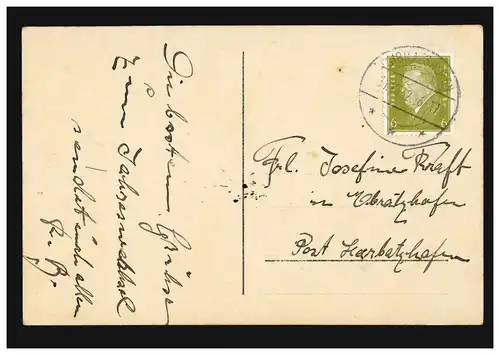 Die besten Grüsse
z
zum Jahreswechsel
sendet euch allen
Frl. Josefine Kraft
in Ebratzhofen
Post Harbatzhofen
6 6